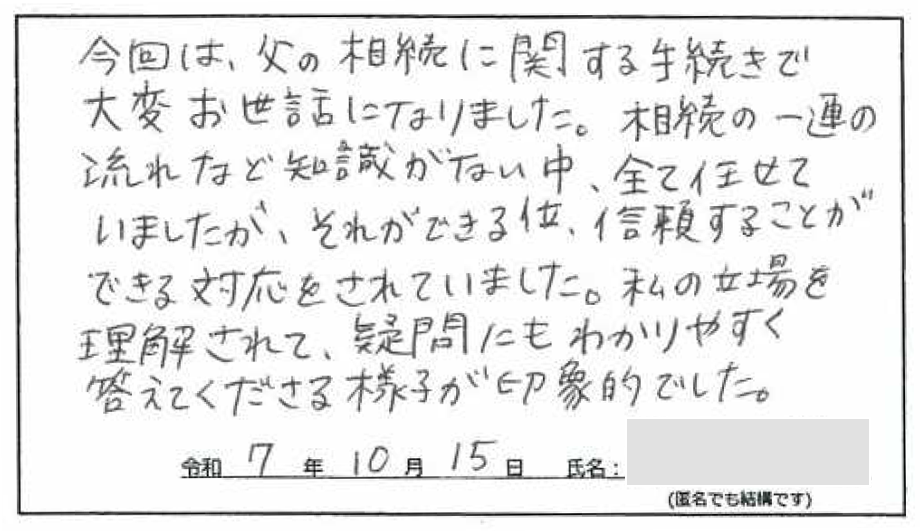 今回は、父の相続に関する手続きで
大変お世話になりました。相続の一連の
流れなど知識がない中、全て任せて
いましたが、それができる位、信頼することが
できる対応をされていました。私の立場を
理解されて、疑問にもわかりやすく
答えてくださる様子が印象的でした。
令和 7 年 10 月 15 日 氏名:
(匿名でも結構です)